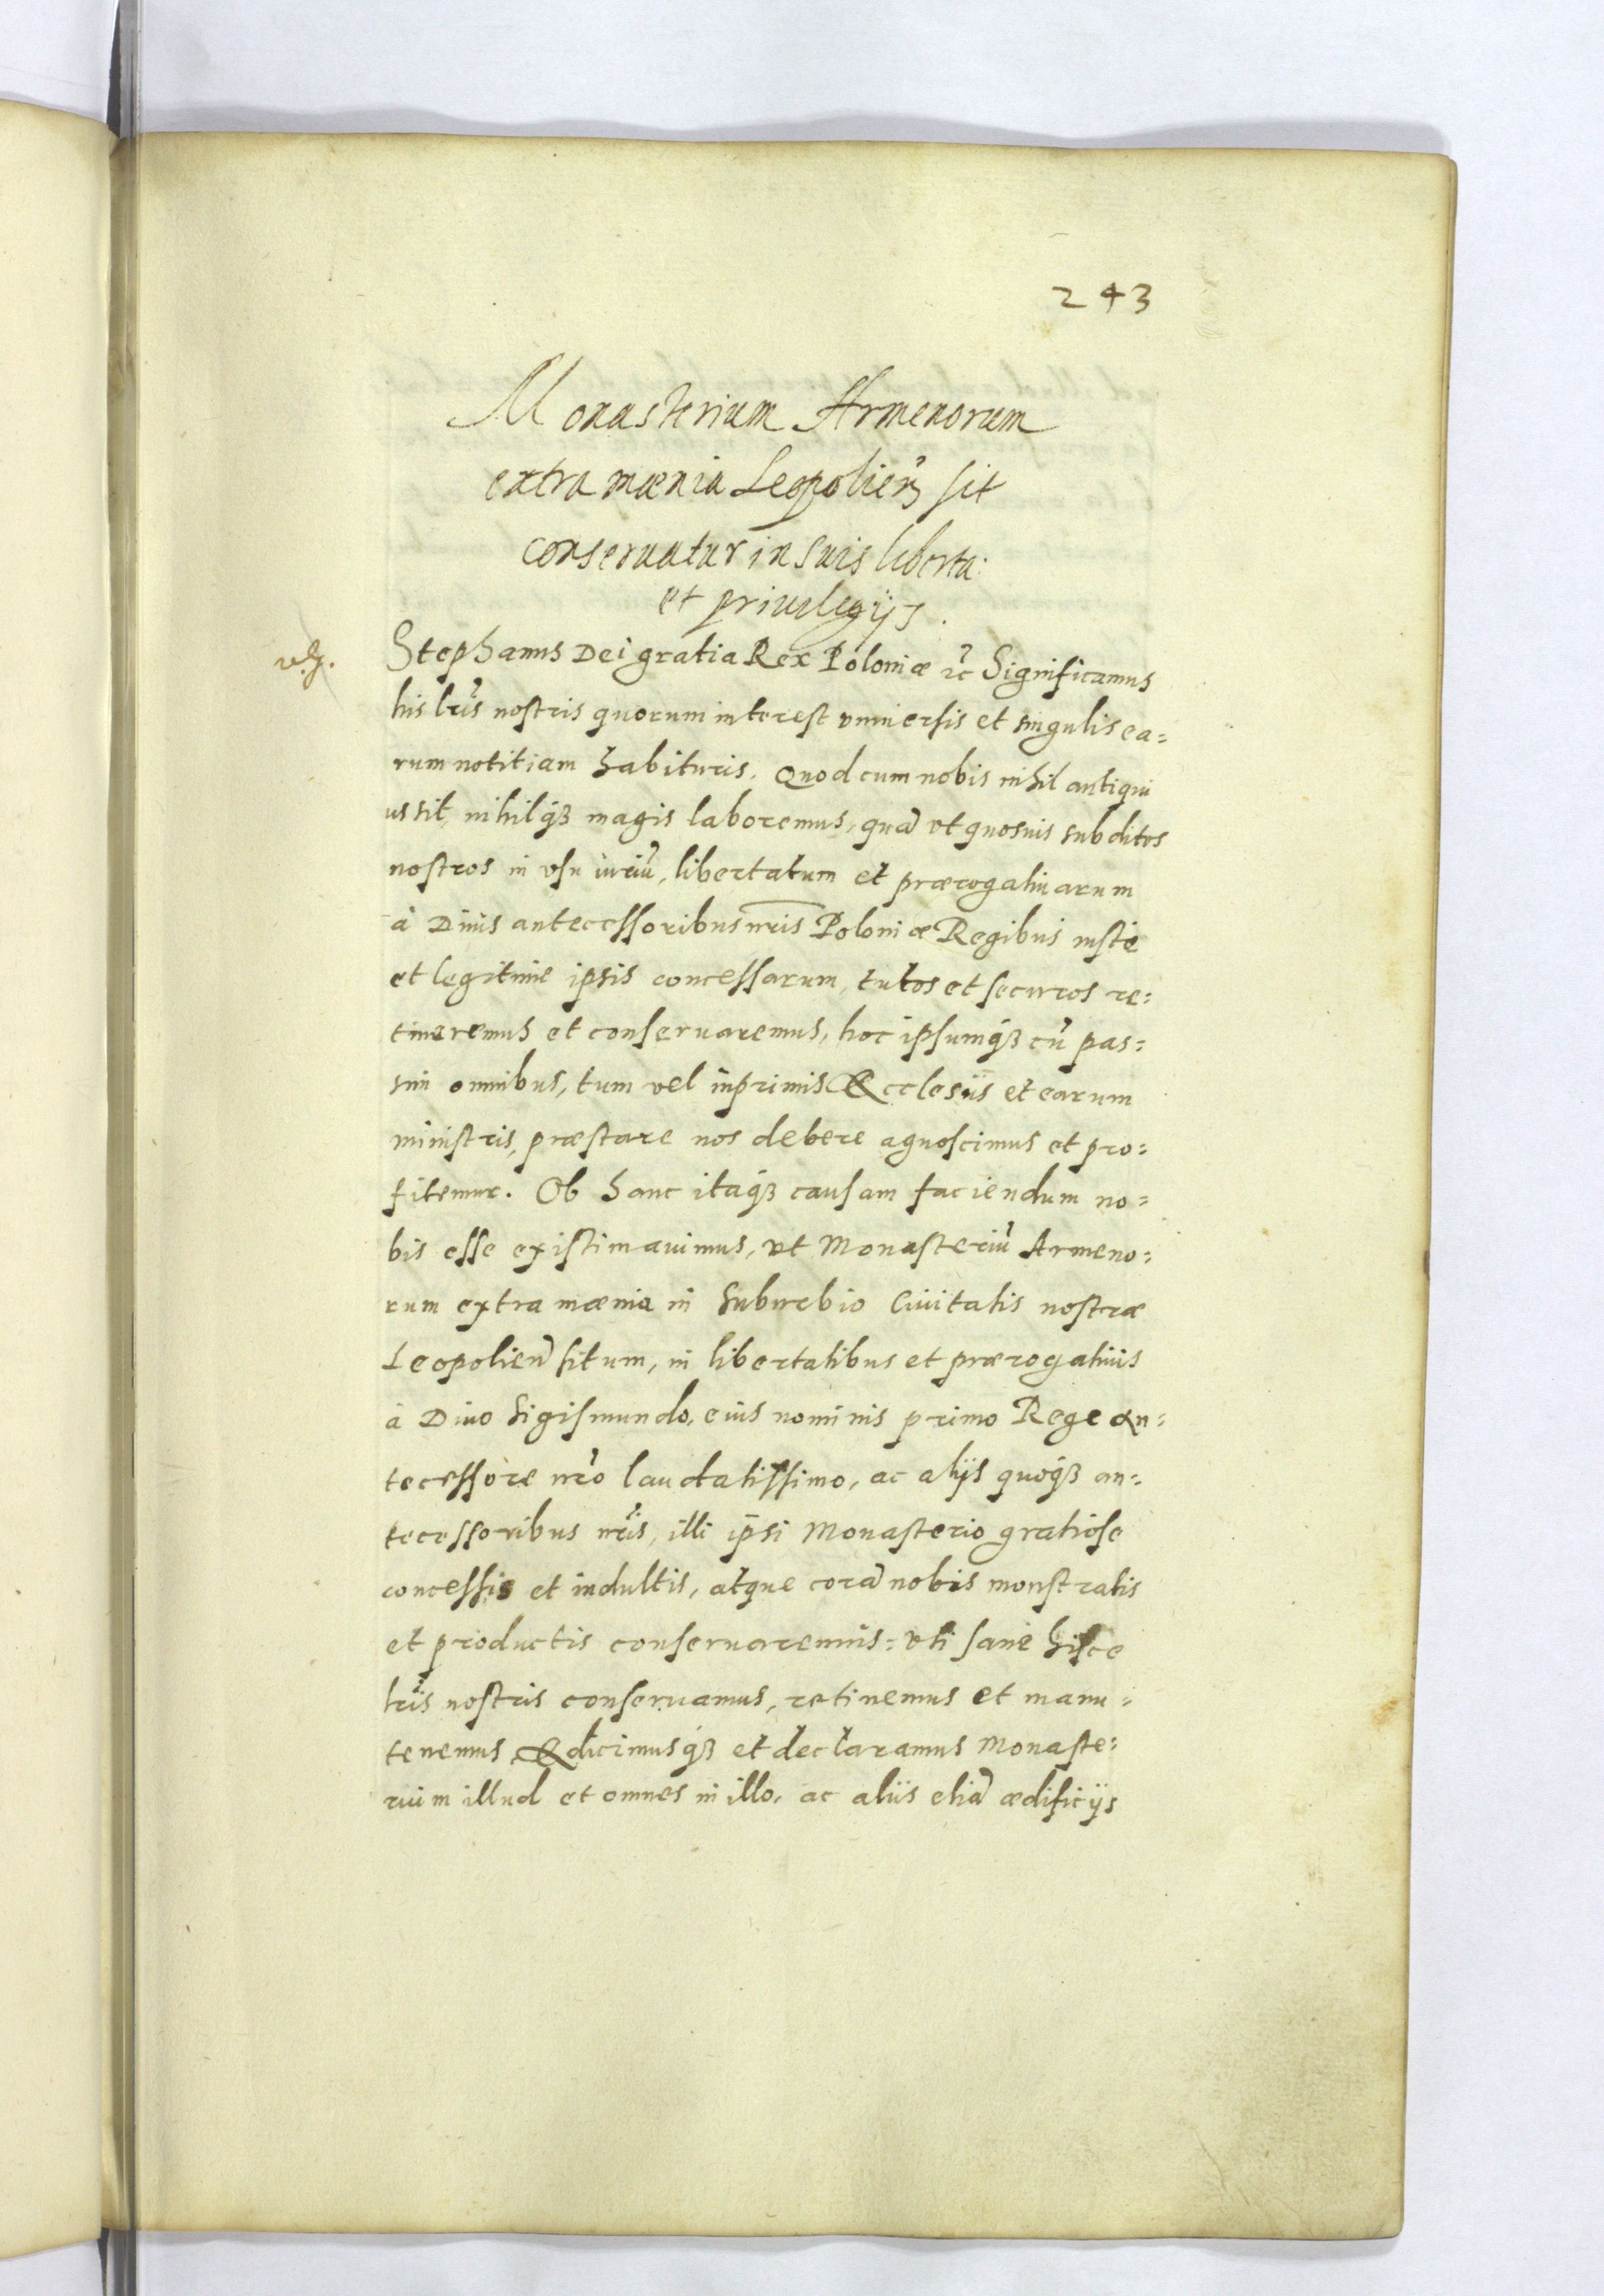 243
Monasterium Armenorum
extra mænia Leopolien̄ sit
conseruatur in suis liberta:
et priuilegijs.
Stephanus Dei gratia Rex Poloniæ ꝛc̄ Significamus
his lr̄is nostris quorum interest vniuersis et singulis ea=
rum notitiam habituris. Quod cum nobis nihil antiqui
us sit, nihilq́ꝫ magis laboremus, quā vt quosuis subditos
nostros in vsu iuriū, libertatum et prærogatiuarum
à Diuis antecessoribus nr̄is Poloniæ Regibus iustè
et legitimè ipsis concessarum, tutos et securos re=
tineremus et conseruaremus, hoc ipsumq́ꝫ cū pas=
sim omnibus, tum vel inprimis Ecclesiis et earum
ministris, præstare nos debere agnoscimus et pro=
fitemur. Ob hanc itaq́ꝫ causam faciendum no=
bis esse existimauimus, vt Monasteriū Armeno=
rum extra mænia in suburbio Ciuitatis nostræ
Leopolien̄ situm, in libertatibus et prærogatiuis
à Diuo Sigismundo, eius nominis primo Rege An=
tecessore nr̄o laudatissimo, ac alijs quoq́ꝫ an=
tecessoribus nr̄is, illi ip̄si Monasterio gratiose
concessis et indultis, atque corā nobis monstratis
et productis conseruaremus: vti sanè hisce
lr̄is nostris conseruamus, retinemus et manu=
tenemus, Edicimusq́ꝫ et declaramus Monaste=
rium illud et omnes in illo, ac aliis etiā ædificijs